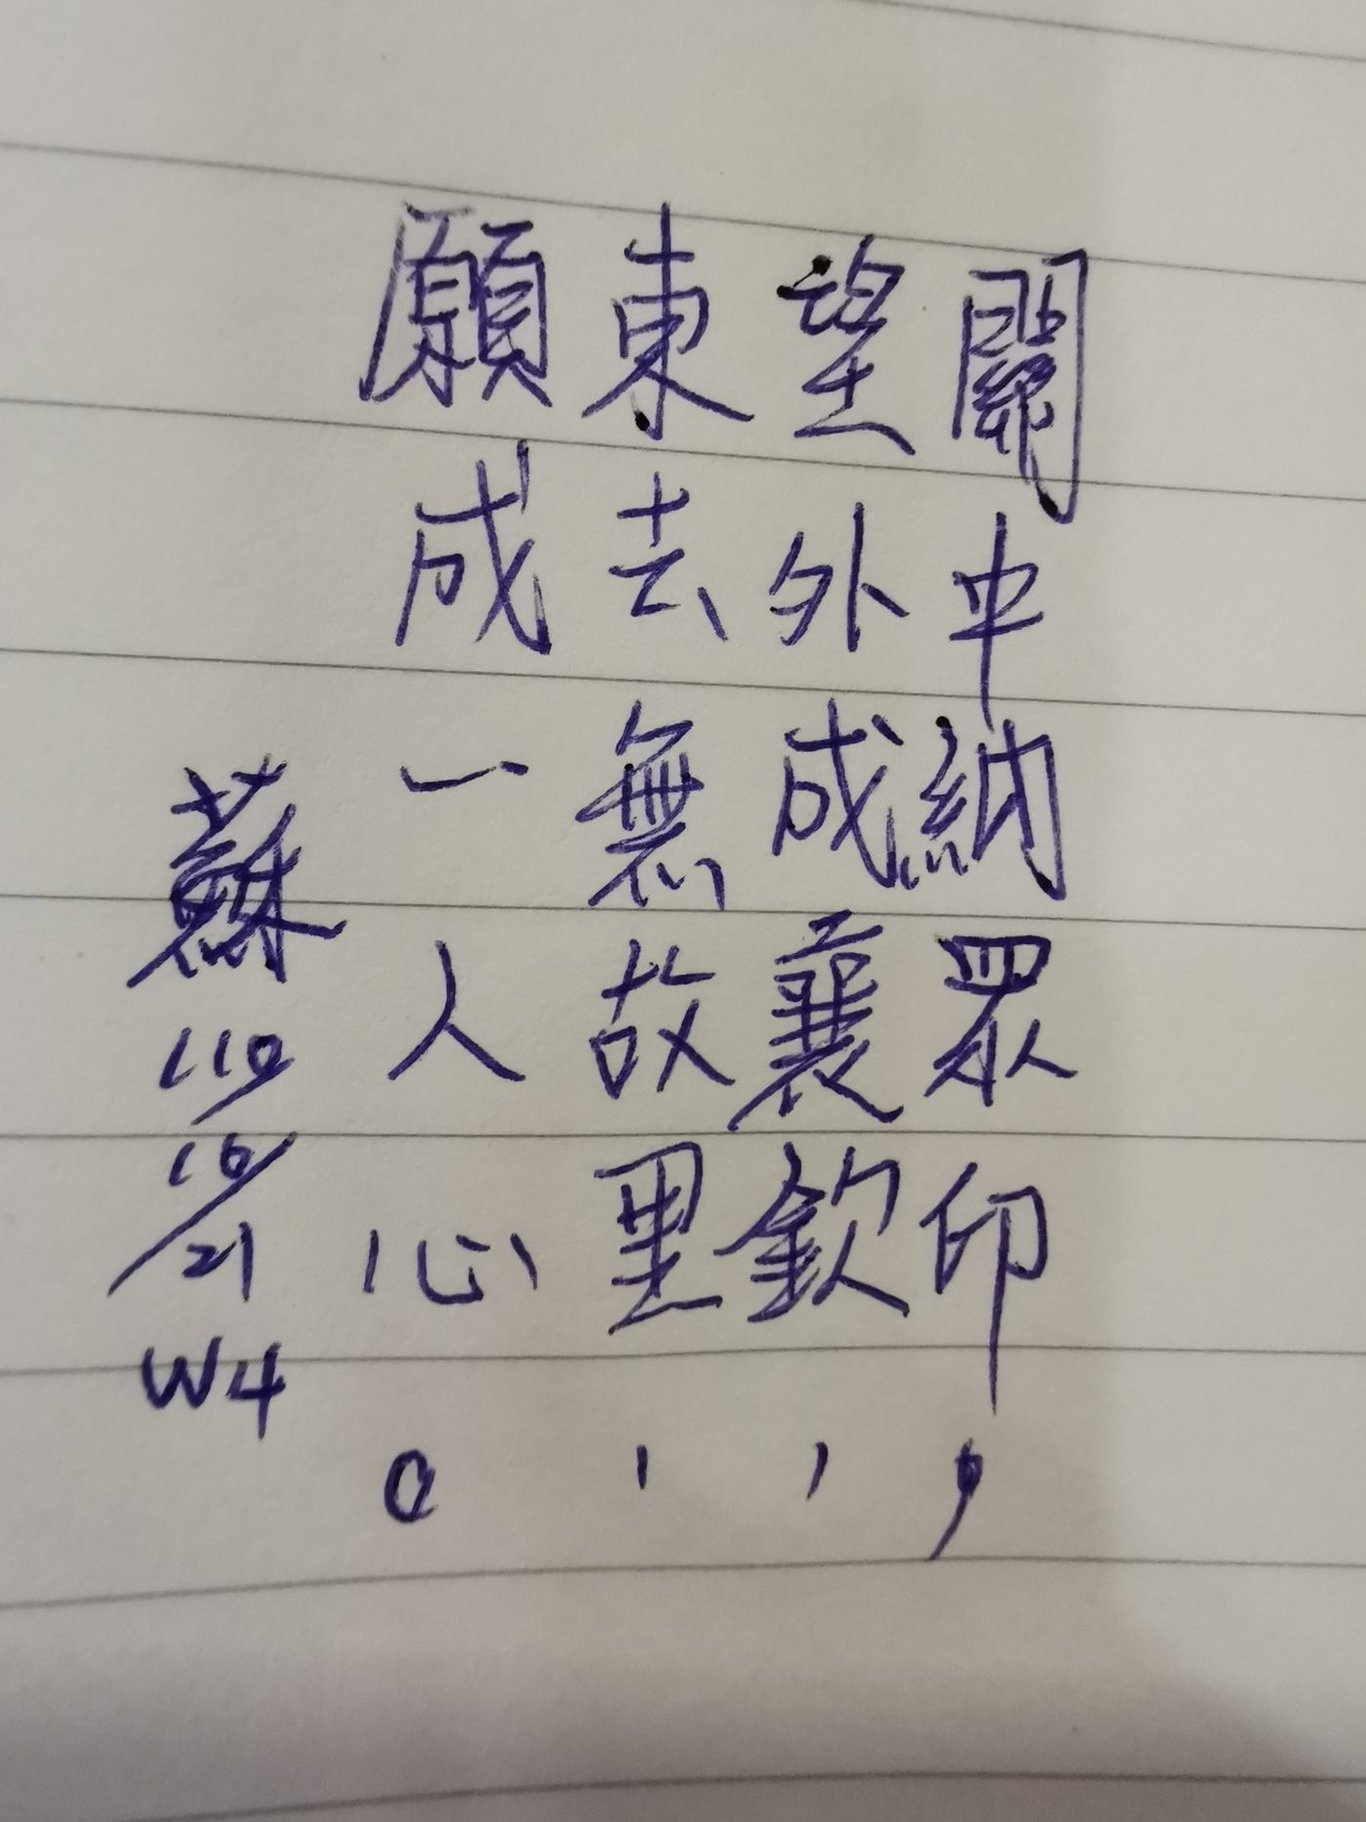 關中納眾印，
望外成襄欽，
東去無故里，
願成一人心。
蘇 110/10/21 W4